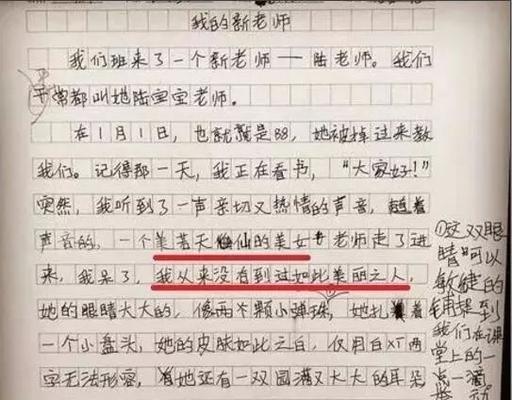 我的新老师
我们班来了一个新老师——陆老师。我们
平常都叫她陆宝宝老师。
在1月1日,也就是88,她被掉过来教
我们。记得那一天,我正在看书,“大家好!”
突然,我听到了一声亲切又热情的声音,随着
声音的,一个美若天仙的美女老师走了进
来,我呆了,我从来没看到过如此美丽之人,
她的眼睛大大的,像两个颗小弹珠,她扎着
一个小盘头,她的皮肤如此之白,仅用白
字无法形容,她还有一双圆满又大大的耳朵
①这双眼
睛可以
敏捷的
捕捉到
我们在课
堂上的一
点一滴